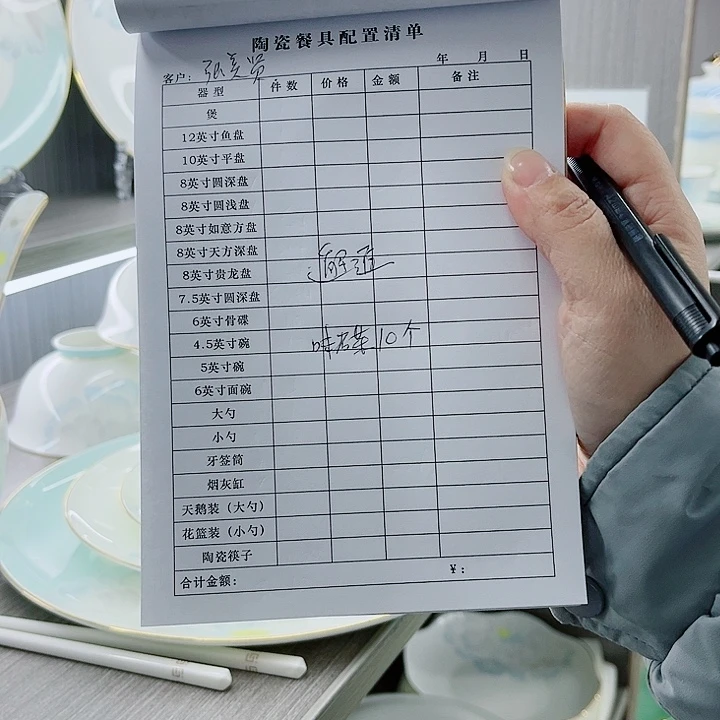 陶瓷餐具配置清单
客户： 年 月 日
器型 件数 价格 金额 备注
煲
12英寸鱼盘
10英寸平盘
8英寸圆深盘
8英寸圆浅盘
8英寸如意方盘
8英寸天方深盘
8英寸贵龙盘
7.5英寸圆深盘
6英寸骨碟
4.5英寸碗 味碟 10个
5英寸碗
6英寸面碗
大勺
小勺
牙签筒
烟灰缸
天鹅装（大勺）
花篮装（小勺）
陶瓷筷子
合计金额： ¥：